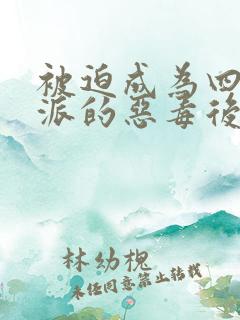 被迫成為四
派的惡毒後
林幼槐
未经同意禁止转载